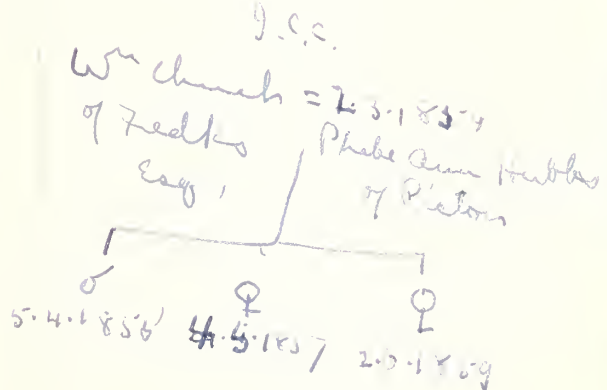 J.C.C.
Wm Church = 2.3.1854
of Fredks Phebe Ann Hubbs
Esq, of Picton
♂ ♀ ♀
5.4.1856 4.5.1857 2.9.1859